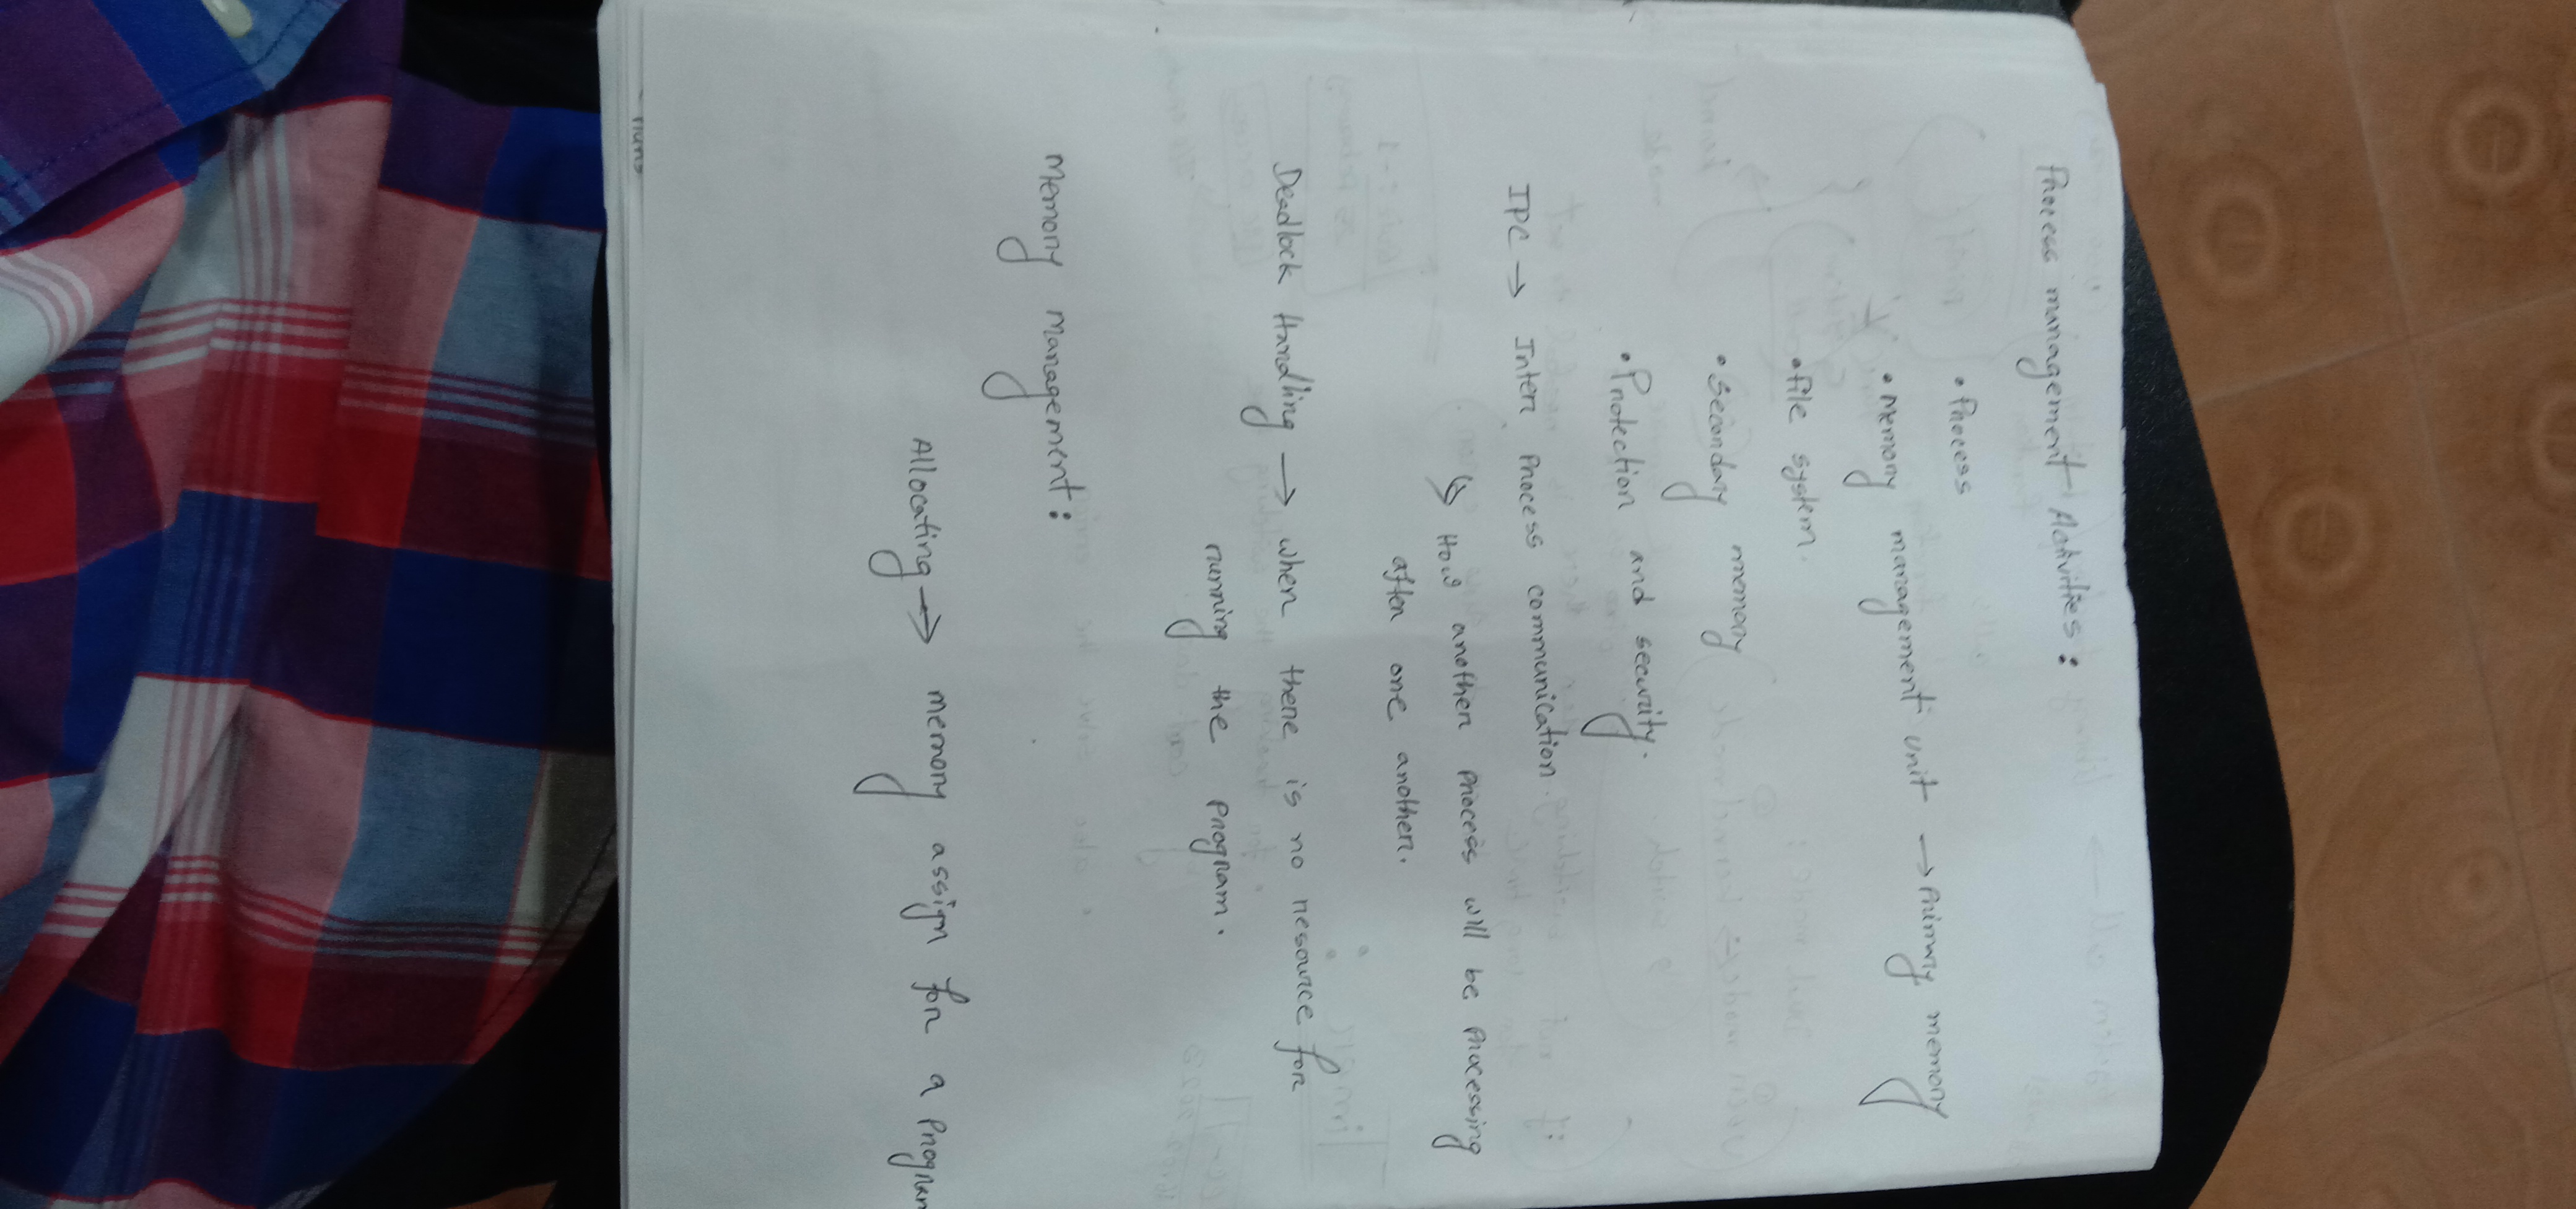 Process management Activities:
• Process
• Memory management unit → Primary memory
• File system.
• Secondary memory
• Protection and security.
IPC → Inter Process communication.
↳ How another process will be processing
after one another.
Deadlock Handling → when there is no resource for
running the program.
Memory management:
Allocating → memory assign for a program
runs